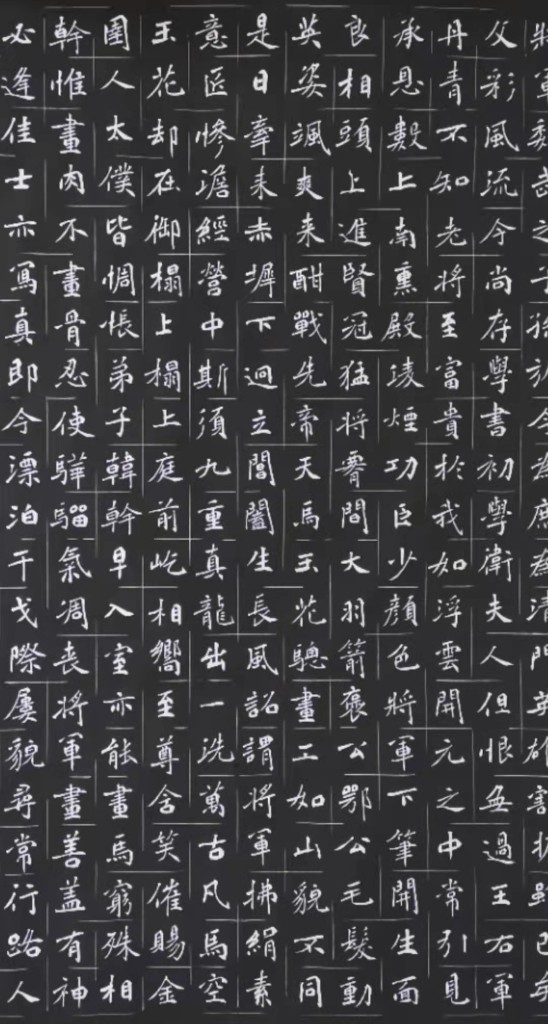 將軍魏武之子孫於今為庶為清門英雄割據雖已矣
文彩風流今尚存學書初學衛夫人但恨無過王右軍
丹青不知老將至富貴於我如浮雲開元之中常引見
承恩數上南熏殿淩煙功臣少顏色將軍下筆開生面
良相頭上進賢冠猛將腰間大羽箭褒公鄂公毛髮動
英姿颯爽来酣戰先帝天馬玉花驄畫工如山貌不同
是日牽来赤墀下迥立閶闔生長風詔謂將軍拂絹素
意匠慘澹經營中斯須九重真龍出一洗萬古凡馬空
玉花却在御榻上榻上庭前屹相嚮至尊含笑催賜金
圉人太僕皆惆悵弟子韓幹早入室亦能畫馬窮殊相
幹惟畫肉不畫骨忍使驊騮氣凋喪將軍畫善蓋有神
必逢佳士亦寫真即今漂泊干戈際屢貌尋常行路人